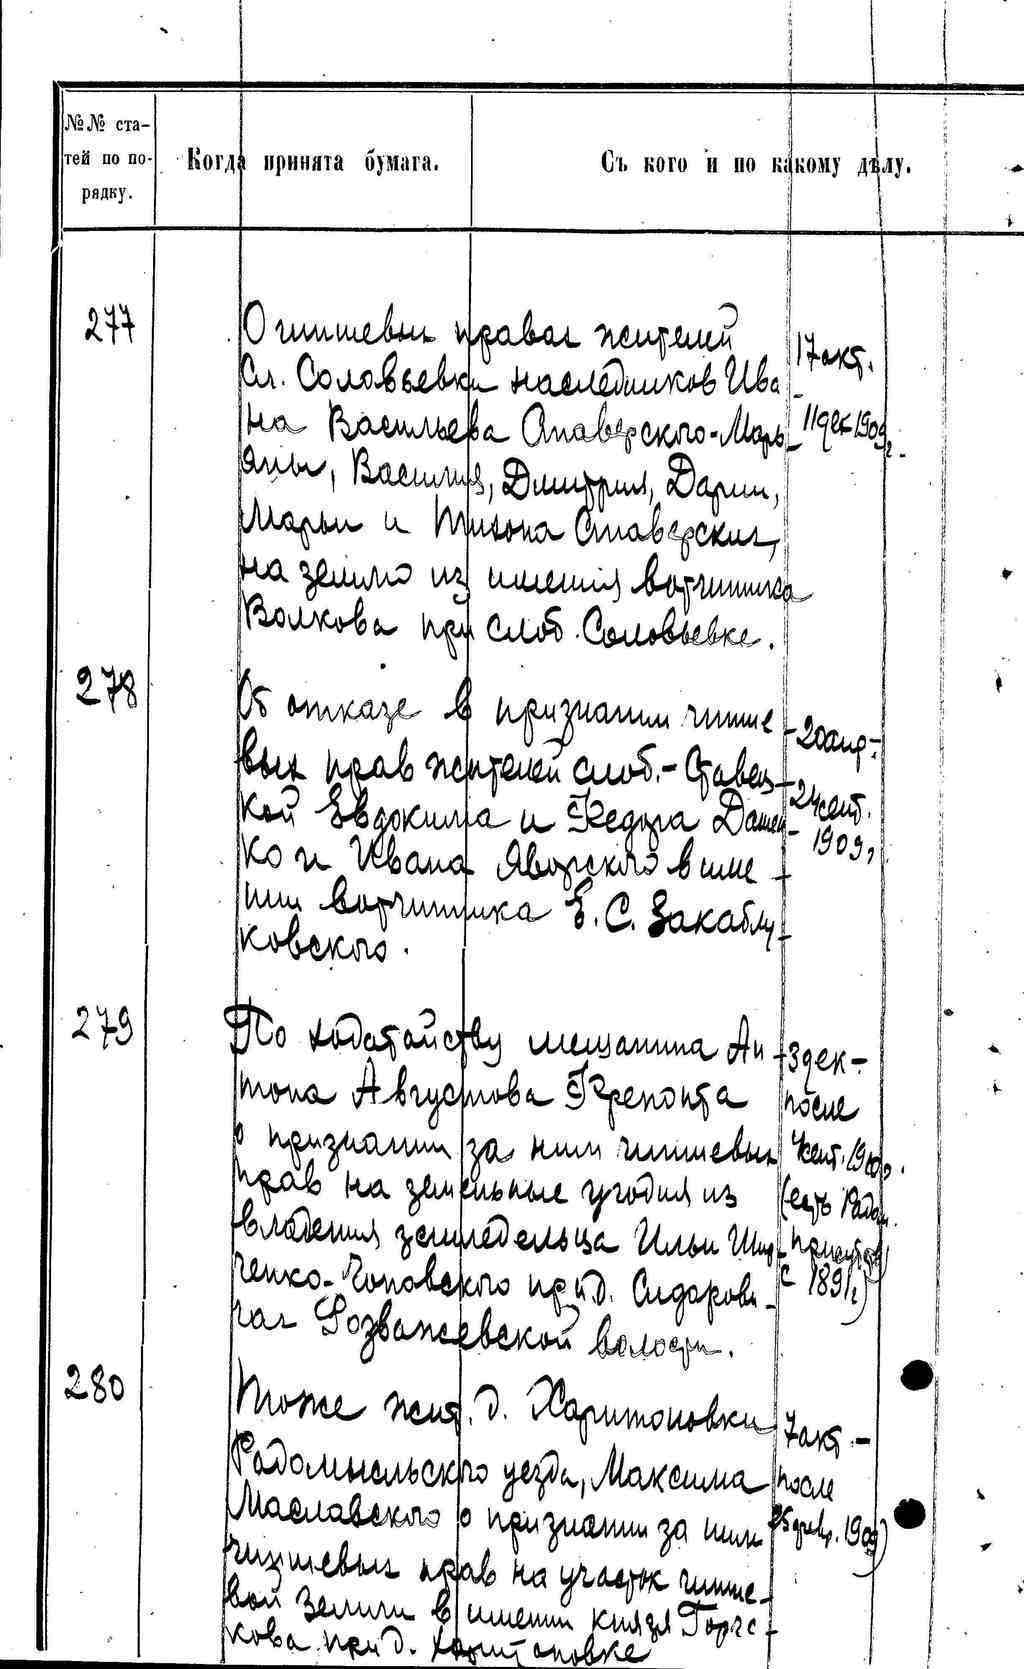 №№ ста-
тей по по-
рядку.
Когда принята бумага.
Съ кого и по какому дѣлу.
277
О чиншевых правах жителей
Сл. Соловьевки наследников Ива
на Васильева Ставерского-Марь
яны, Василия, Дмитрия, Дарии,
Марьи и Тихона Ставерских,
на землю из имения вотчинника
Волкова при слоб. Соловьевке.
17 окт.
11 дек 1909 г.
278
Об отказе в признании чинше
вых прав жителей слоб.- Ставец
кой Евдокима и Федора Дашен
ко и Ивана Яворского в име
нии вотчинника Е. С. Закаблу
ковского.
20 апр.-
24 сент.
1909 г
279
По ходатайству мещанина Ан
тона Августова Френонта
о признании за ним чиншевых
прав на земельные угодия из
владения землевладельца Ильи
ченко-Чоповского при д. Сидорови
чах Розважевской волости.
3 дек -
после
сент. 19
(есть Радом.
присутств
с 1891 г)
280
Тоже жит. д. Харитоновки
Радомысльского уезда, Максима
Маславского о признании за ним
чиншевых прав на участок чинше-
вой земли в имении князя Горча
кова при д. Харитоновке
7 окт -
после
25 февр. 1909)